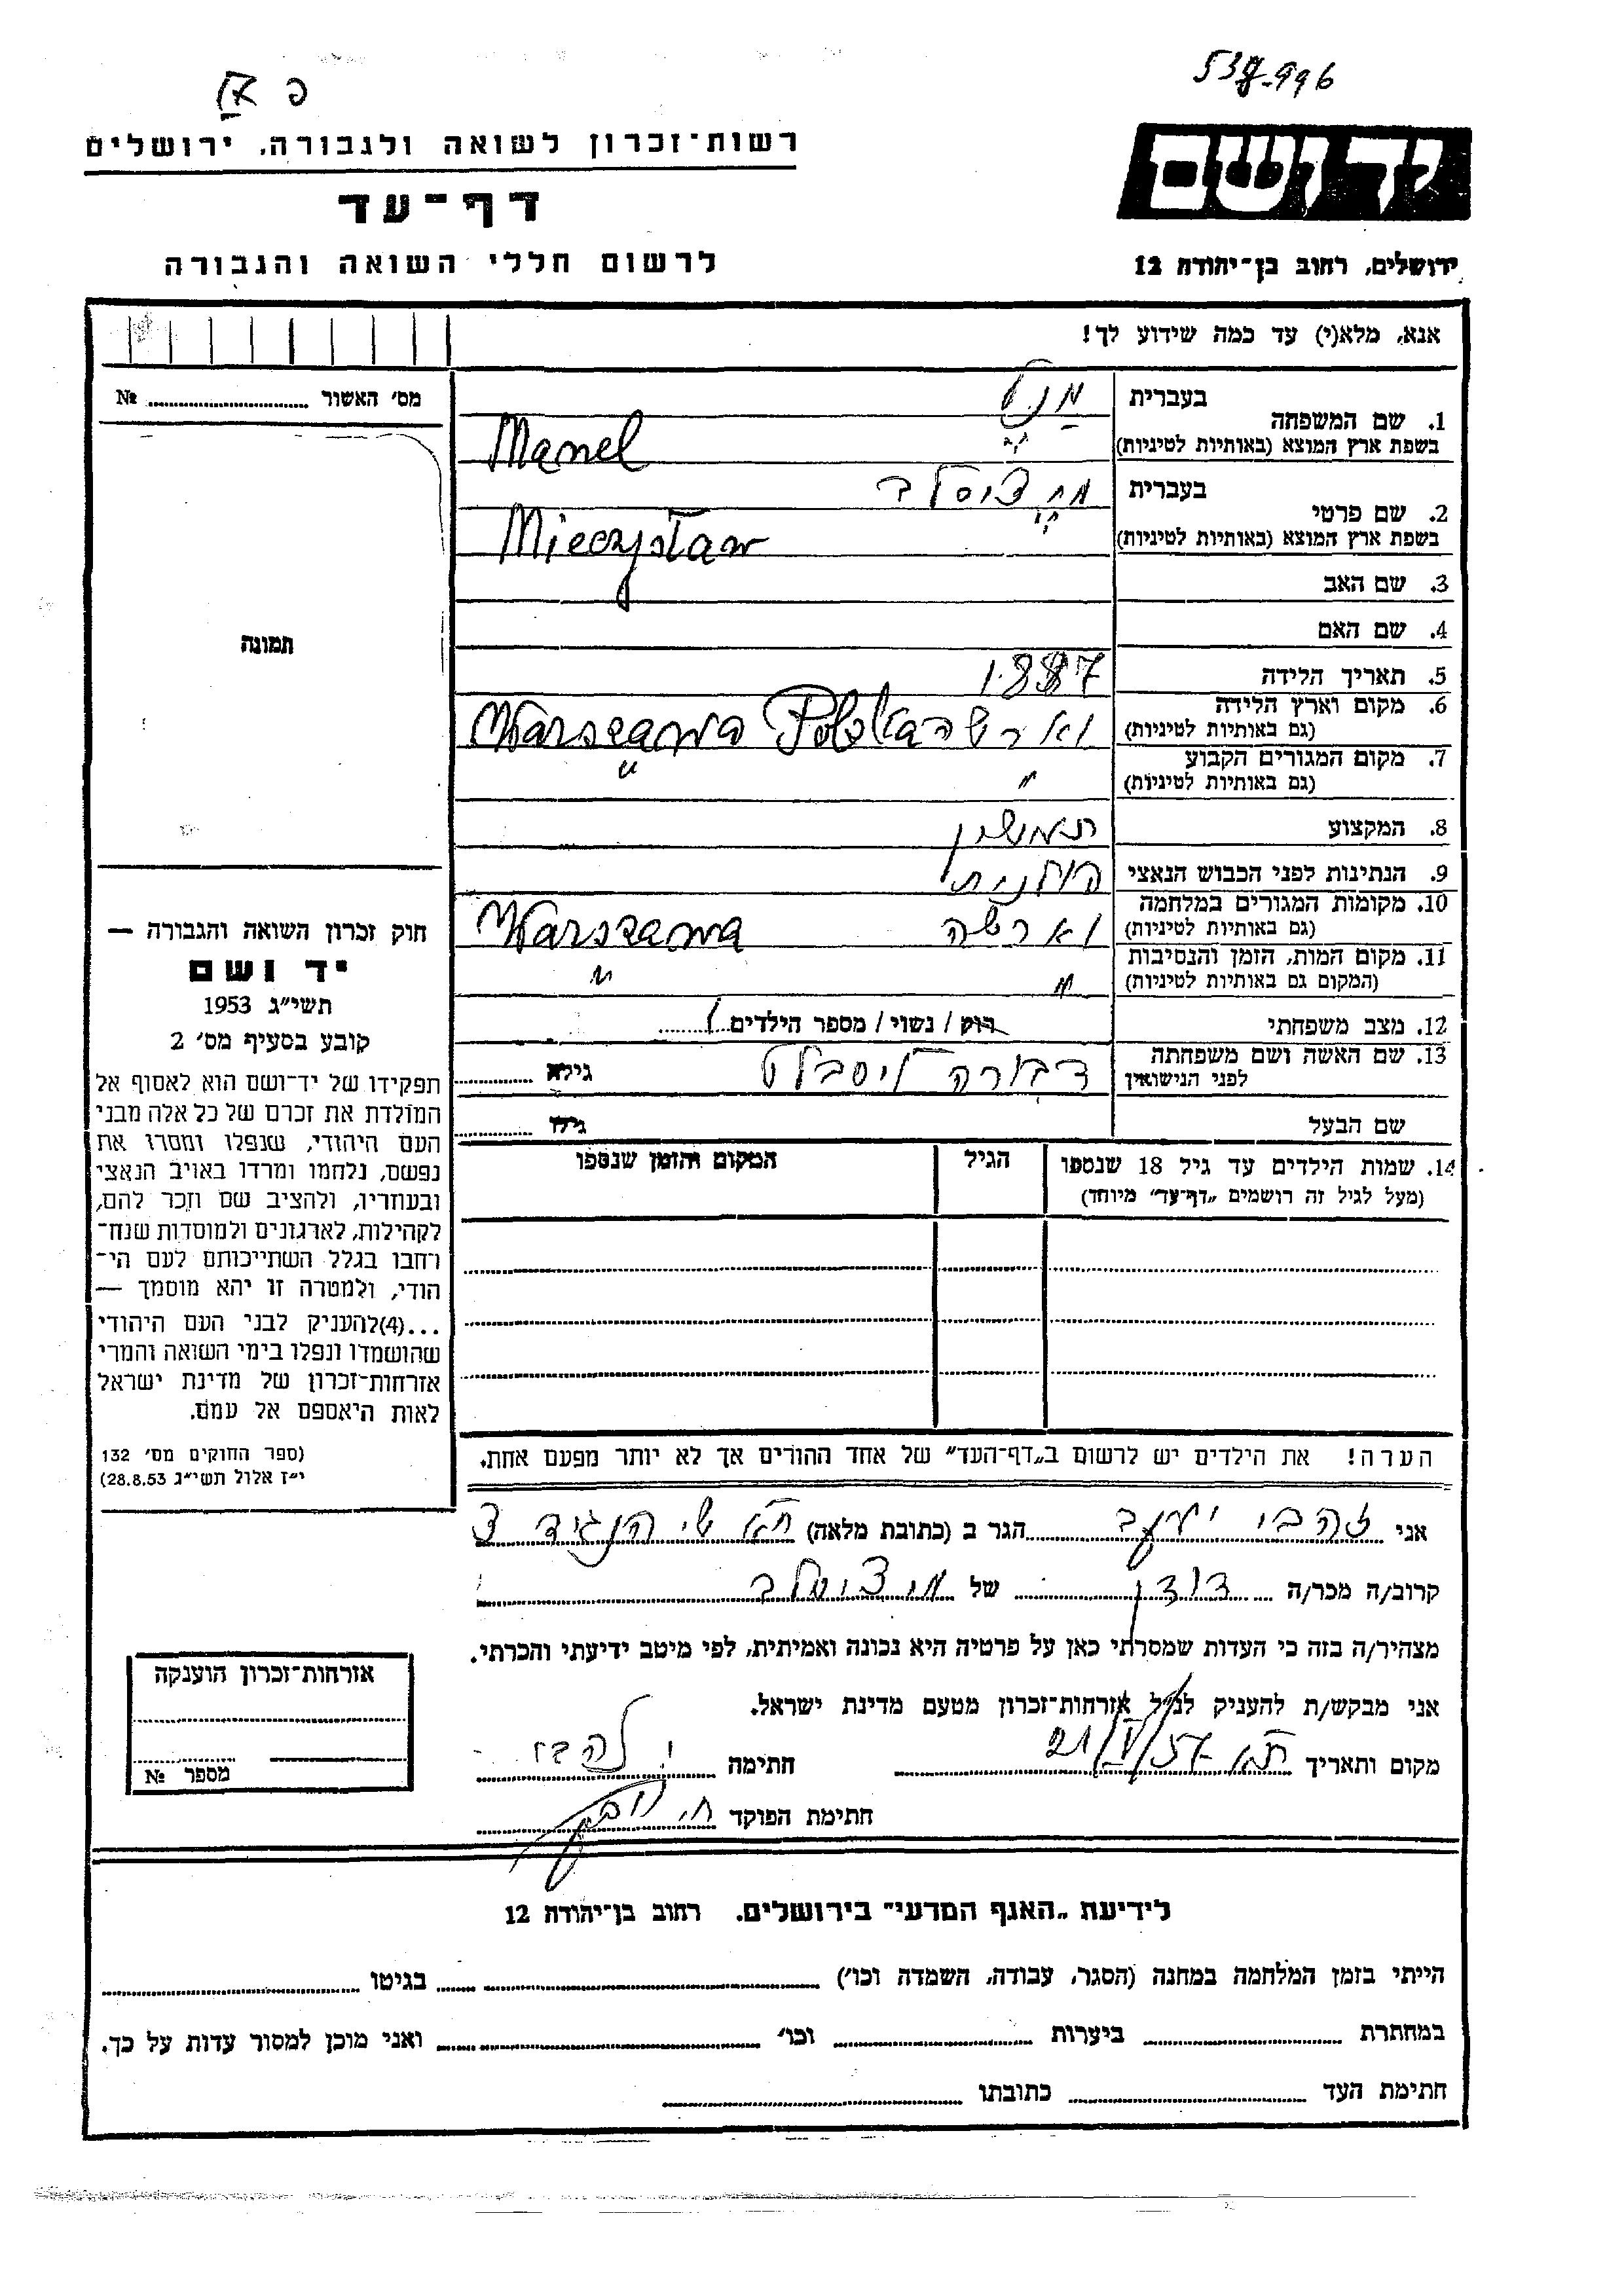 פ
רשות־זכרון לשואה ולגבורה, ירושלים
דף־עד
לרשום חללי השואה והגבורה
יד ושם
ירושלים, רחוב בן־יהודה 12
אנא, מלא(י) עד כמה שידוע לך!
מס׳ האשור № 
1. שם המשפחה
בעברית מנל
בשפת ארץ המוצא (באותיות לטיניות) Manel
2. שם פרטי
בעברית
בשפת ארץ המוצא (באותיות לטיניות) Mieczysław
3. שם האב
4. שם האם
5. תאריך הלידה 1887
6. מקום וארץ הלידה
(גם באותיות לטיניות) וארשה Warszawa Polska
7. מקום המגורים הקבוע
(גם באותיות לטיניות) " "
8. המקצוע
9. הנתינות לפני הכבוש הנאצי פולנית
10. מקומות המגורים במלחמה
(גם באותיות לטיניות) וארשה Warszawa
11. מקום המות, הזמן והנסיבות
(המקום גם באותיות לטיניות) " "
12. מצב משפחתי רוק / נשוי / מספר הילדים 1
13. שם האשה ושם משפחתה
לפני הנישואין דבורה גילה
שם הבעל גילו
14. שמות הילדים עד גיל 18 שנספו
(מעל לגיל זה רושמים „דף־עד” מיוחד)
הגיל
המקום והזמן שנספו
הערה! את הילדים יש לרשום ב„דף־העד” של אחד ההורים אך לא יותר מפעם אחת.
תמונה
חוק זכרון השואה והגבורה —
יד ושם
תשי״ג 1953
קובע בסעיף מס׳ 2
תפקידו של יד־ושם הוא לאסוף אל
המולדת את זכרם של כל אלה מבני
העם היהודי, שנפלו ומסרו את
נפשם, נלחמו ומרדו באויב הנאצי
ובעוזריו, ולהציב שם וזכר להם,
לקהילות, לארגונים ולמוסדות שנח־
רחבו בגלל השתייכותם לעם הי־
הודי, ולמטרה זו יהא מוסמך —
...(4)להעניק לבני העם היהודי
שהושמדו ונפלו בימי השואה והמרי
אזרחות־זכרון של מדינת ישראל
לאות היאספם אל עמם.
(ספר החוקים מס׳ 132
י״ז אלול תשי״ג 28.8.53)
אני זהבי יעקב הגר ב (כתובת מלאה) ת״א
קרוב/ה מכר/ה דודן של
מצהיר/ה בזה כי העדות שמסרתי כאן על פרטיה היא נכונה ואמיתית, לפי מיטב ידיעתי והכרתי.
אני מבקש/ת להעניק לנ״ל אזרחות־זכרון מטעם מדינת ישראל.
מקום ותאריך ת״א חתימה י. זהבי
חתימת הפוקד
אזרחות־זכרון הוענקה
מספר №
לידיעת „האגף המדעי” בירושלים. רחוב בן־יהודה 12
הייתי בזמן המלחמה במחנה (הסגר, עבודה, השמדה וכו׳) בגיטו
במחתרת ביערות וכו׳ ואני מוכן למסור עדות על כך.
חתימת העד כתובתו